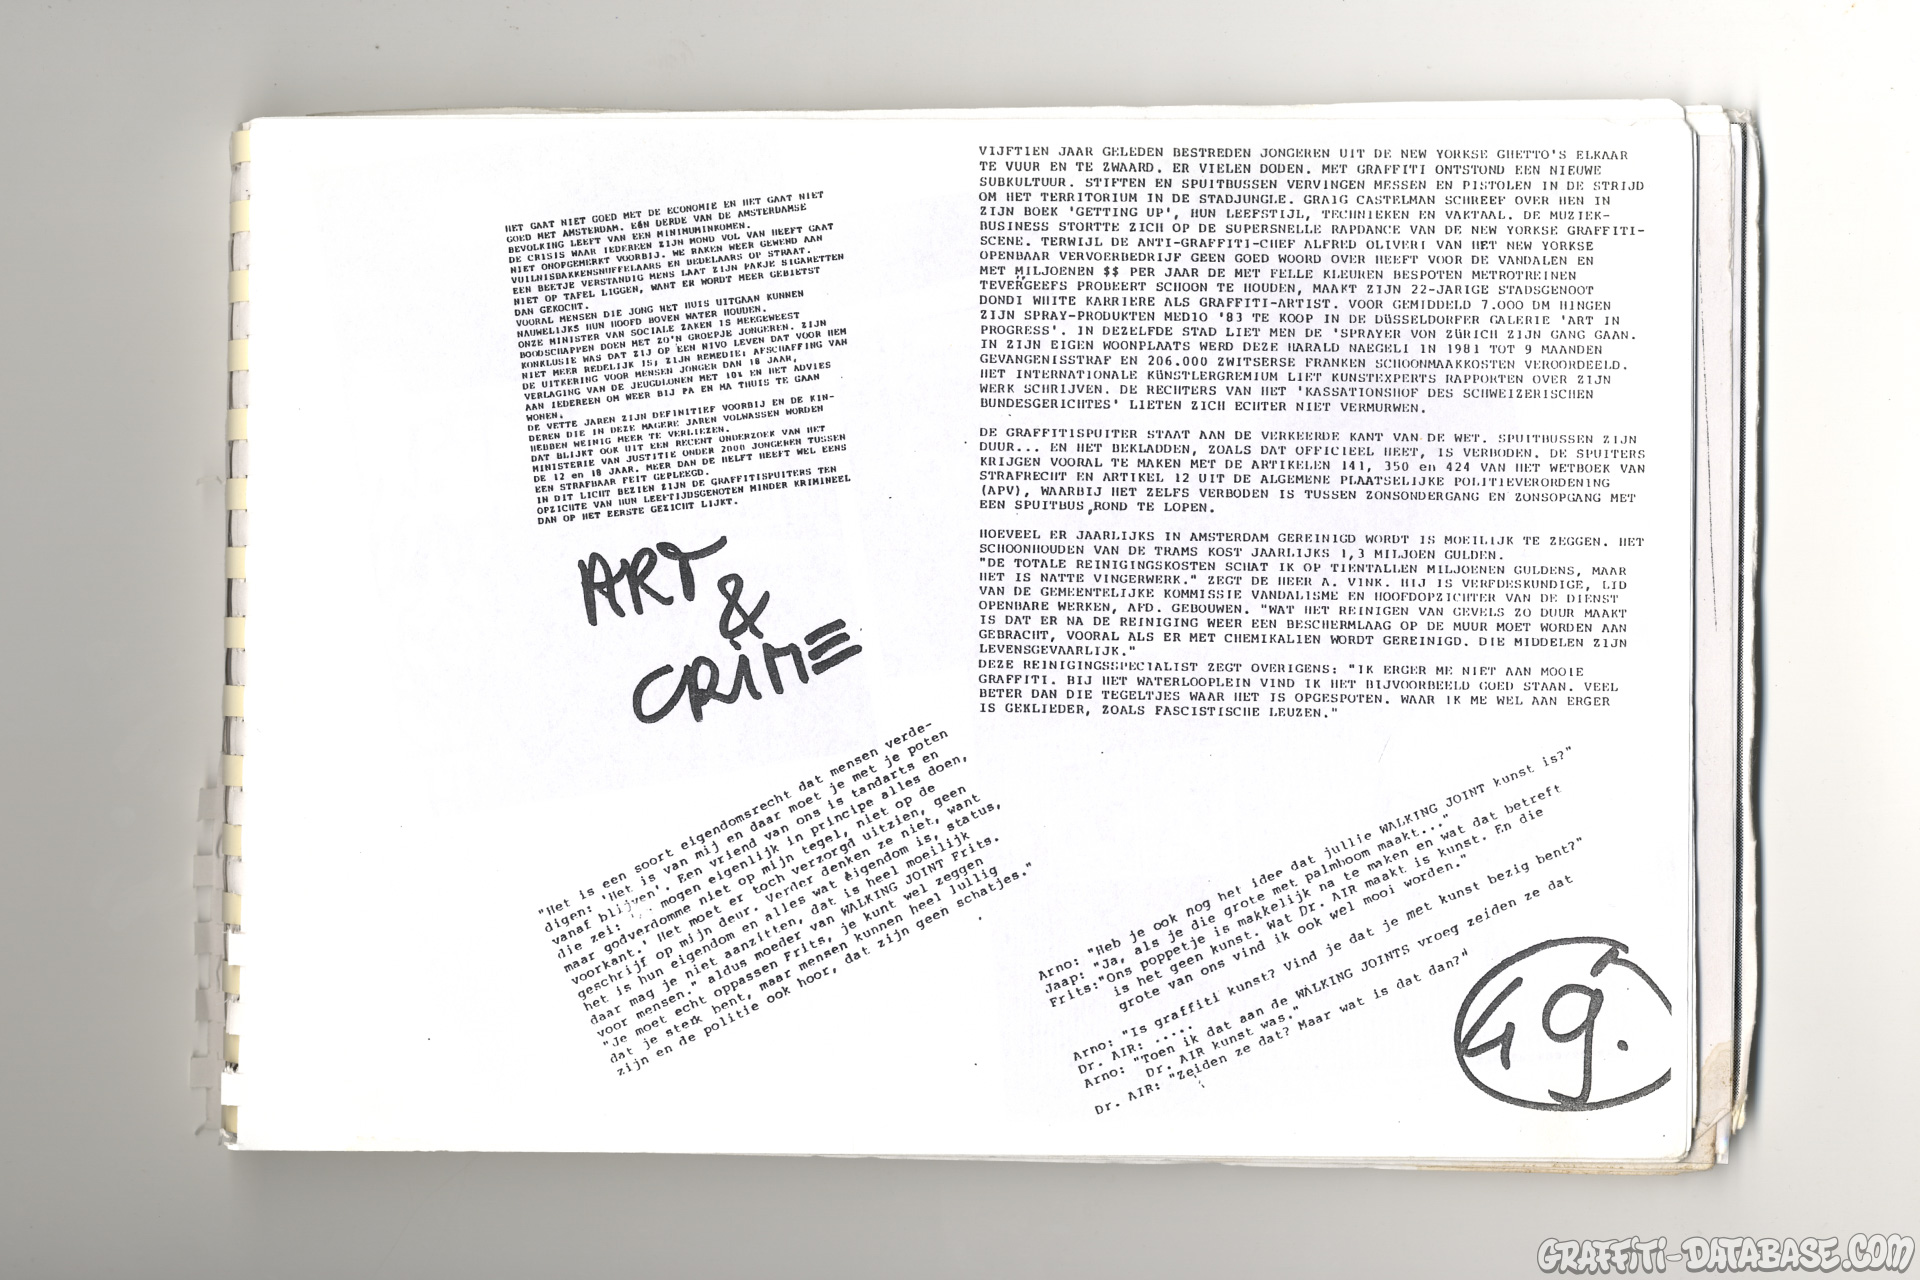 HET GAAT NIET GOED MET DE ECONOMIE EN HET GAAT NIET
GOED MET AMSTERDAM. EÉN DERDE VAN DE AMSTERDAMSE
BEVOLKING LEEFT VAN EEN MINIMUMINKOMEN.
DE CRISIS WAAR IEDEREEN ZIJN MOND VOL VAN HEEFT GAAT
NIET ONOPGEMERKT VOORBIJ. WE RAKEN WEER GEWEND AAN
VUILNISBAKKENSNUFFELAARS EN BEDELAARS OP STRAAT.
EEN BEETJE VERSTANDIG MENS LAAT ZIJN PAKJE SIGARETTEN
NIET OP TAFEL LIGGEN, WANT ER WORDT MEER GEBIETST
DAN GEKOCHT.
VOORAL MENSEN DIE JONG HET HUIS UITGAAN KUNNEN
NAUWELIJKS HUN HOOFD BOVEN WATER HOUDEN.
ONZE MINISTER VAN SOCIALE ZAKEN IS MEEGEWEEST
BOODSCHAPPEN DOEN MET ZO'N GROEPJE JONGEREN. ZIJN
KONKLUSIE WAS DAT ZIJ OP EEN NIVO LEVEN DAT VOOR HEM
NIET MEER REDELIJK IS; ZIJN REMEDIE: AFSCHAFFING VAN
DE UITKERING VOOR MENSEN JONGER DAN 18 JAAR,
VERLAGING VAN DE JEUGDLONEN MET 10% EN HET ADVIES
AAN IEDEREEN OM WEER BIJ PA EN MA THUIS TE GAAN
WONEN.
DE VETTE JAREN ZIJN DEFINITIEF VOORBIJ EN DE KIN-
DEREN DIE IN DEZE MAGERE JAREN VOLWASSEN WORDEN
HEBBEN WEINIG MEER TE VERLIEZEN.
DAT BLIJKT OOK UIT EEN RECENT ONDERZOEK VAN HET
MINISTERIE VAN JUSTITIE ONDER 2000 JONGEREN TUSSEN
DE 12 en 18 JAAR. MEER DAN DE HELFT HEEFT WEL EENS
EEN STRAFBAAR FEIT GEPLEEGD.
IN DIT LICHT BEZIEN ZIJN DE GRAFFITISPUITERS TEN
OPZICHTE VAN HUN LEEFTIJDSGENOTEN MINDER KRIMINEEL
DAN OP HET EERSTE GEZICHT LIJKT.
ART
&
CRIME
"Het is een soort eigendomsrecht dat mensen verde-
digen: 'Het is van mij en daar moet je met je poten
vanaf blijven'. Een vriend van ons is tandarts en
die zei: mogen eigenlijk in principe alles doen,
maar godverdomme niet op mijn tegel, niet op de
voorkant.' Het moet er toch verzorgd uitzien, geen
geschrijf op mijn deur. Verder denken ze niet, want
het is hun eigendom en alles wat eigendom is, status,
daar mag je niet aanzitten, dat is heel moeilijk
voor mensen." aldus moeder van WALKING JOINT Frits.
"Je moet echt oppassen Frits, je kunt wel zeggen
dat je sterk bent, maar mensen kunnen heel lullig
zijn en de politie ook hoor, dat zijn geen schatjes."
VIJFTIEN JAAR GELEDEN BESTREDEN JONGEREN UIT DE NEW YORKSE GHETTO'S ELKAAR
TE VUUR EN TE ZWAARD. ER VIELEN DODEN. MET GRAFFITI ONTSTOND EEN NIEUWE
SUBKULTUUR. STIFTEN EN SPUITBUSSEN VERVINGEN MESSEN EN PISTOLEN IN DE STRIJD
OM HET TERRITORIUM IN DE STADJUNGLE. GRAIG CASTELMAN SCHREEF OVER HEN IN
ZIJN BOEK 'GETTING UP', HUN LEEFSTIJL, TECHNIEKEN EN VAKTAAL. DE MUZIEK-
BUSINESS STORTTE ZICH OP DE SUPERSNELLE RAPDANCE VAN DE NEW YORKSE GRAFFITI-
SCENE. TERWIJL DE ANTI-GRAFFITI-CHEF ALFRED OLIVERI VAN HET NEW YORKSE
OPENBAAR VERVOERBEDRIJF GEEN GOED WOORD OVER HEEFT VOOR DE VANDALEN EN
MET MILJOENEN $$ PER JAAR DE MET FELLE KLEUREN BESPOTEN METROTREINEN
TEVERGEEFS PROBEERT SCHOON TE HOUDEN, MAAKT ZIJN 22-JARIGE STADSGENOOT
DONDI WHITE KARRIERE ALS GRAFFITI-ARTIST. VOOR GEMIDDELD 7.000 DM HINGEN
ZIJN SPRAY-PRODUKTEN MEDIO '83 TE KOOP IN DE DÜSSELDORFER GALERIE 'ART IN
PROGRESS'. IN DEZELFDE STAD LIET MEN DE 'SPRAYER VON ZÜRICH ZIJN GANG GAAN.
IN ZIJN EIGEN WOONPLAATS WERD DEZE HARALD NAEGELI IN 1981 TOT 9 MAANDEN
GEVANGENISSTRAF EN 206.000 ZWITSERSE FRANKEN SCHOONMAAKKOSTEN VEROORDEELD.
HET INTERNATIONALE KÜNSTLERGREMIUM LIET KUNSTEXPERTS RAPPORTEN OVER ZIJN
WERK SCHRIJVEN. DE RECHTERS VAN HET 'KASSATIONSHOF DES SCHWEIZERISCHEN
BUNDESGERICHTES' LIETEN ZICH ECHTER NIET VERMURWEN.
DE GRAFFITISPUITER STAAT AAN DE VERKEERDE KANT VAN DE WET. SPUITBUSSEN ZIJN
DUUR... EN HET BEKLADDEN, ZOALS DAT OFFICIEEL HEET, IS VERBODEN. DE SPUITERS
KRIJGEN VOORAL TE MAKEN MET DE ARTIKELEN 141, 350 en 424 VAN HET WETBOEK VAN
STRAFRECHT EN ARTIKEL 12 UIT DE ALGEMENE PLAATSELIJKE POLITIEVERORDENING
(APV), WAARBIJ HET ZELFS VERBODEN IS TUSSEN ZONSONDERGANG EN ZONSOPGANG MET
EEN SPUITBUS ROND TE LOPEN.
HOEVEEL ER JAARLIJKS IN AMSTERDAM GEREINIGD WORDT IS MOEILIJK TE ZEGGEN. HET
SCHOONHOUDEN VAN DE TRAMS KOST JAARLIJKS 1,3 MILJOEN GULDEN.
"DE TOTALE REINIGINGSKOSTEN SCHAT IK OP TIENTALLEN MILJOENEN GULDENS, MAAR
HET IS NATTE VINGERWERK." ZEGT DE HEER A. VINK. HIJ IS VERFDESKUNDIGE, LID
VAN DE GEMEENTELIJKE KOMMISSIE VANDALISME EN HOOFDOPZICHTER VAN DE DIENST
OPENBARE WERKEN, AFD. GEBOUWEN. "WAT HET REINIGEN VAN GEVELS ZO DUUR MAAKT
IS DAT ER NA DE REINIGING WEER EEN BESCHERMLAAG OP DE MUUR MOET WORDEN AAN
GEBRACHT, VOORAL ALS ER MET CHEMIKALIEN WORDT GEREINIGD. DIE MIDDELEN ZIJN
LEVENSGEVAARLIJK."
DEZE REINIGINGSSPECIALIST ZEGT OVERIGENS: "IK ERGER ME NIET AAN MOOIE
GRAFFITI. BIJ HET WATERLOOPLEIN VIND IK HET BIJVOORBEELD GOED STAAN. VEEL
BETER DAN DIE TEGELTJES WAAR HET IS OPGESPOTEN. WAAR IK ME WEL AAN ERGER
IS GEKLIEDER, ZOALS FASCISTISCHE LEUZEN."
Arno: "Heb je ook nog het idee dat jullie WALKING JOINT kunst is?"
Jaap: "Ja, als je die grote met palmboom maakt..."
Frits:"Ons poppetje is makkelijk na te maken en wat dat betreft
is het geen kunst. Wat Dr. AIR maakt is kunst. En die
grote van ons vind ik ook wel mooi worden."
Arno: "Is graffiti kunst? Vind je dat je met kunst bezig bent?"
Dr. AIR: .....
Arno: "Toen ik dat aan de WALKING JOINTS vroeg zeiden ze dat
Dr. AIR kunst was."
Dr. AIR: "Zeiden ze dat? Maar wat is dat dan?"
49.
GRAFFITI-DATABASE.COM